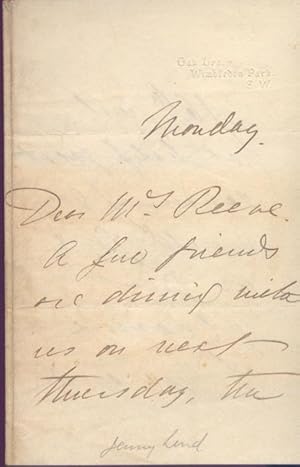 Oak Lea,
Wimbledon Park
S.W.
Monday.
Dear Mrs Reeve.
A few friends
are dining with
us on next
Thursday, the
Jenny Lind